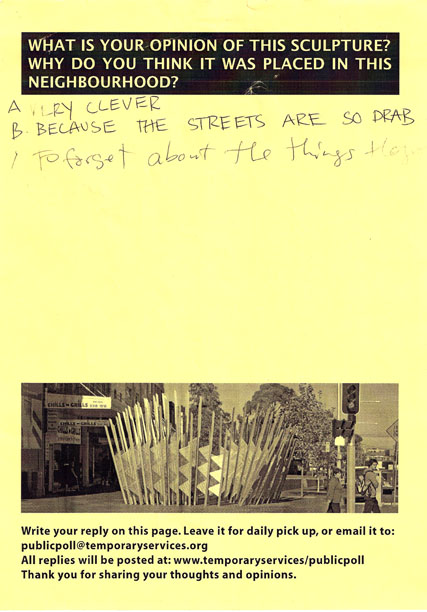 WHAT IS YOUR OPINION OF THIS SCULPTURE?
WHY DO YOU THINK IT WAS PLACED IN THIS
NEIGHBOURHOOD?
A. VERY CLEVER
B. BECAUSE THE STREETS ARE SO DRAB
To forget about the things
Write your reply on this page. Leave it for daily pick up, or email it to:
publicpoll@temporaryservices.org
All replies will be posted at: www.temporaryservices/publicpoll
Thank you for sharing your thoughts and opinions.